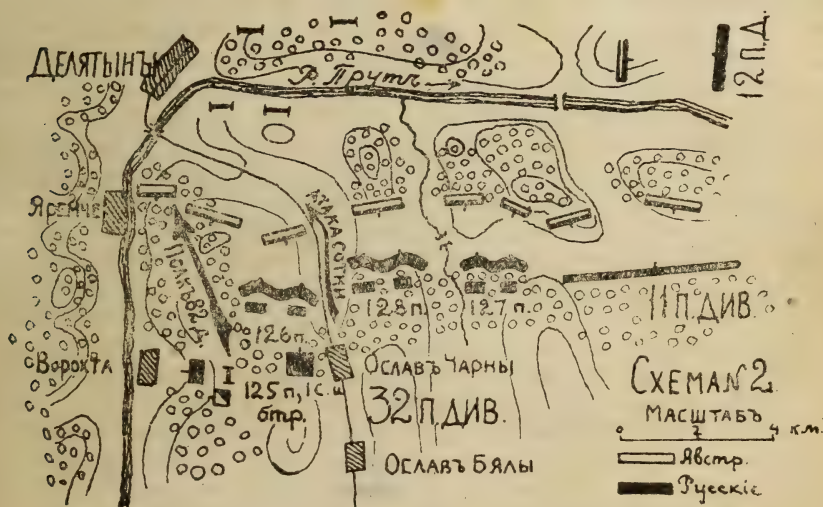 ДЕЛЯТЫНЪ
Р. ПРУТЪ
12 П. Д.
ЯРЕМЧЕ
АТАКА СОТНИ
ПОЛКЪ 82 Д.
126 п.
128 п.
127 п.
11 П. ДИВ.
ВОРОХТА
125 п, 1 С. Б
бтр.
ОСЛАВЪ ЧАРНЫ
32 П. ДИВ.
ОСЛАВЪ БЯЛЫ
СХЕМА N 2.
МАСШТАБЪ
0 2 4 км.
Австр.
Русскіе